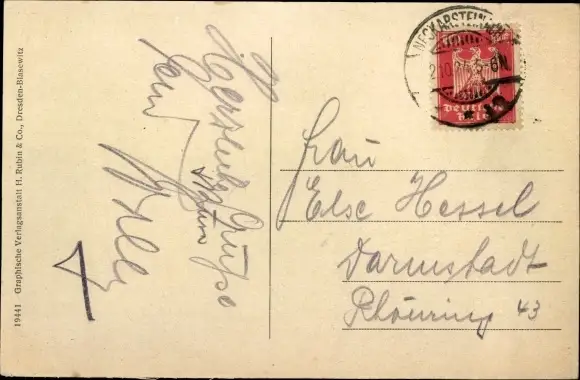 19441 Graphische Verlagsanstalt H. Rubin & Co., Dresden-Blasewitz
Herzliche Grüße
NECKARSTEINACH
5-6N.
Deutsches
Reich
Frau
Else Hessel
Darmstadt
Rhönring 43